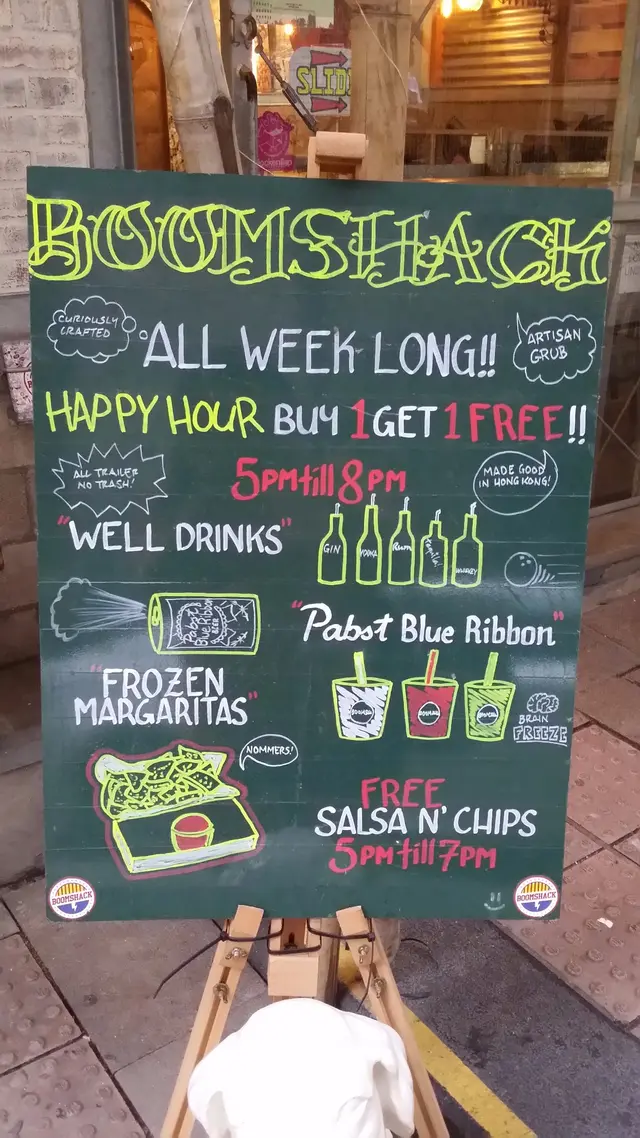 SLID
BOOMSHACK
CURIOUSLY
CRAFTED
ALL WEEK LONG!!
ARTISAN
GRUB
HAPPY HOUR BUY 1 GET 1 FREE!!
ALL TRAILER
NO TRASH!
5PM till 8PM
MADE GOOD
IN HONG KONG!
"WELL DRINKS"
GIN
VODKA
Rum
Tequila
WHISKEY
Pabst
Blue Ribbon
BEER
"Pabst Blue Ribbon"
"FROZEN
MARGARITAS"
BRAIN
FREEZE
NOMMERS!
FREE
SALSA N' CHIPS
5PM till 7PM
BOOMSHACK
BOOMSHACK